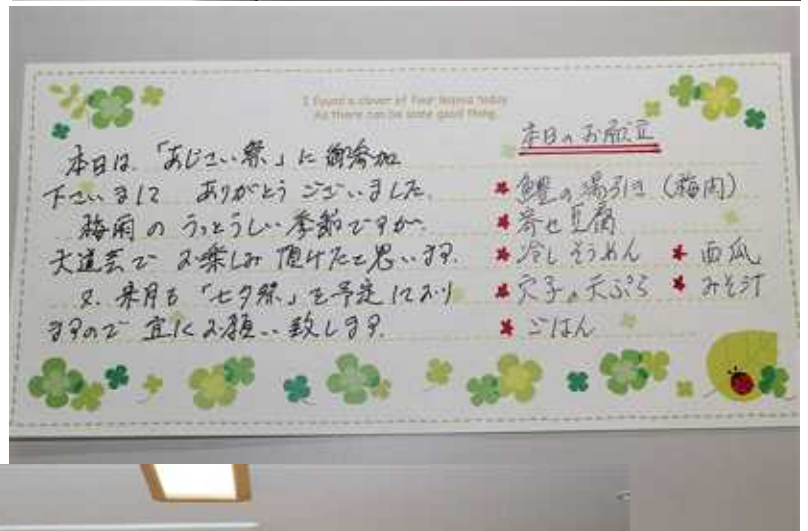 I found a clover of four leaves today
As there can be some good thing.
本日は、「あじさい祭」に御参加
下さいまして ありがとうございました。
梅雨の うっとうしい季節ですが、
大道芸で お楽しみ頂けたと思います。
又、来月も「七夕祭」を予定しており
ますので 宜しくお願い致します。
本日のお献立
鱧の湯引き（梅肉）
寄せ豆腐
冷しそうめん
西瓜
穴子の天ぷら
みそ汁
ごはん